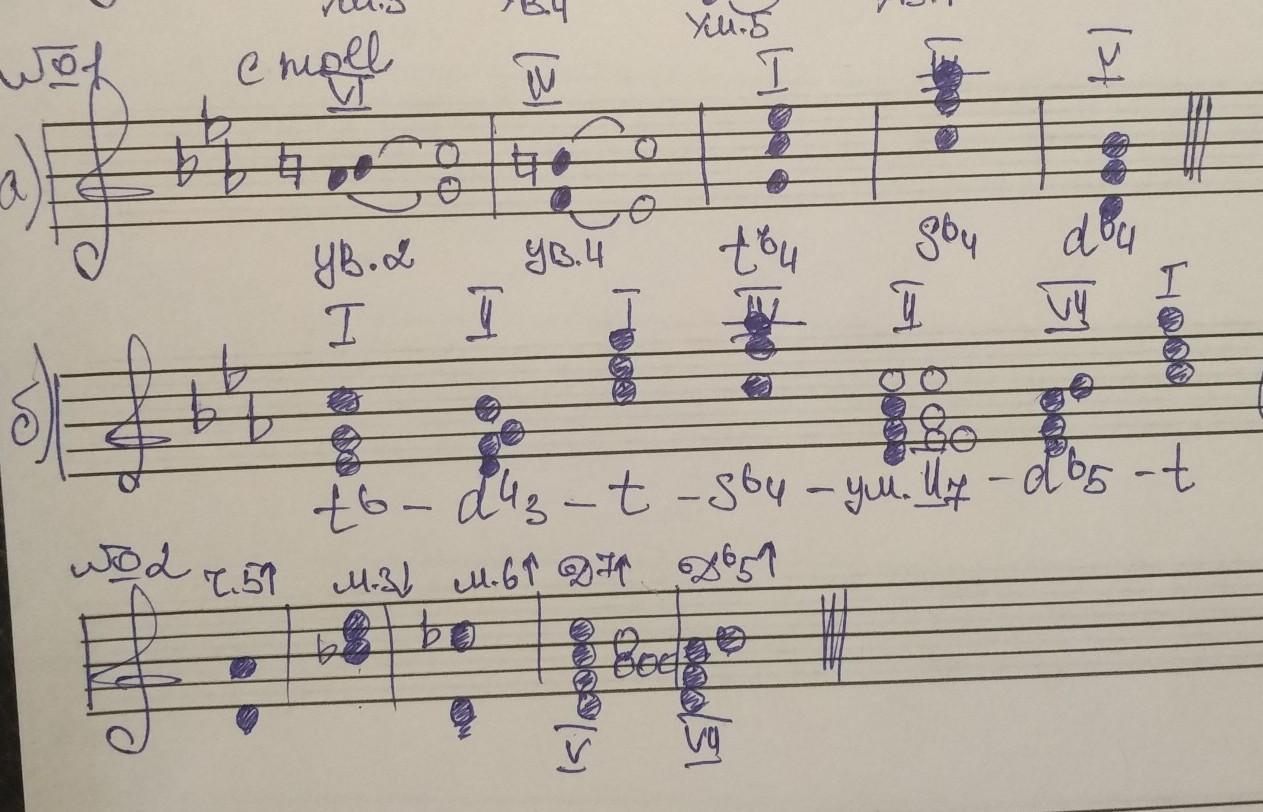 ум.5
№1 c moll
VI IV I IV V
а)
ув.2 ув.4 t64 s64 d64
I II I IV II VII I
б)
t6 – d43 – t – s64 – ум. II7 – d65 – t
№2 ч.5↑ м.3↓ м.6↑ Д7↑ Д65↑
V VII